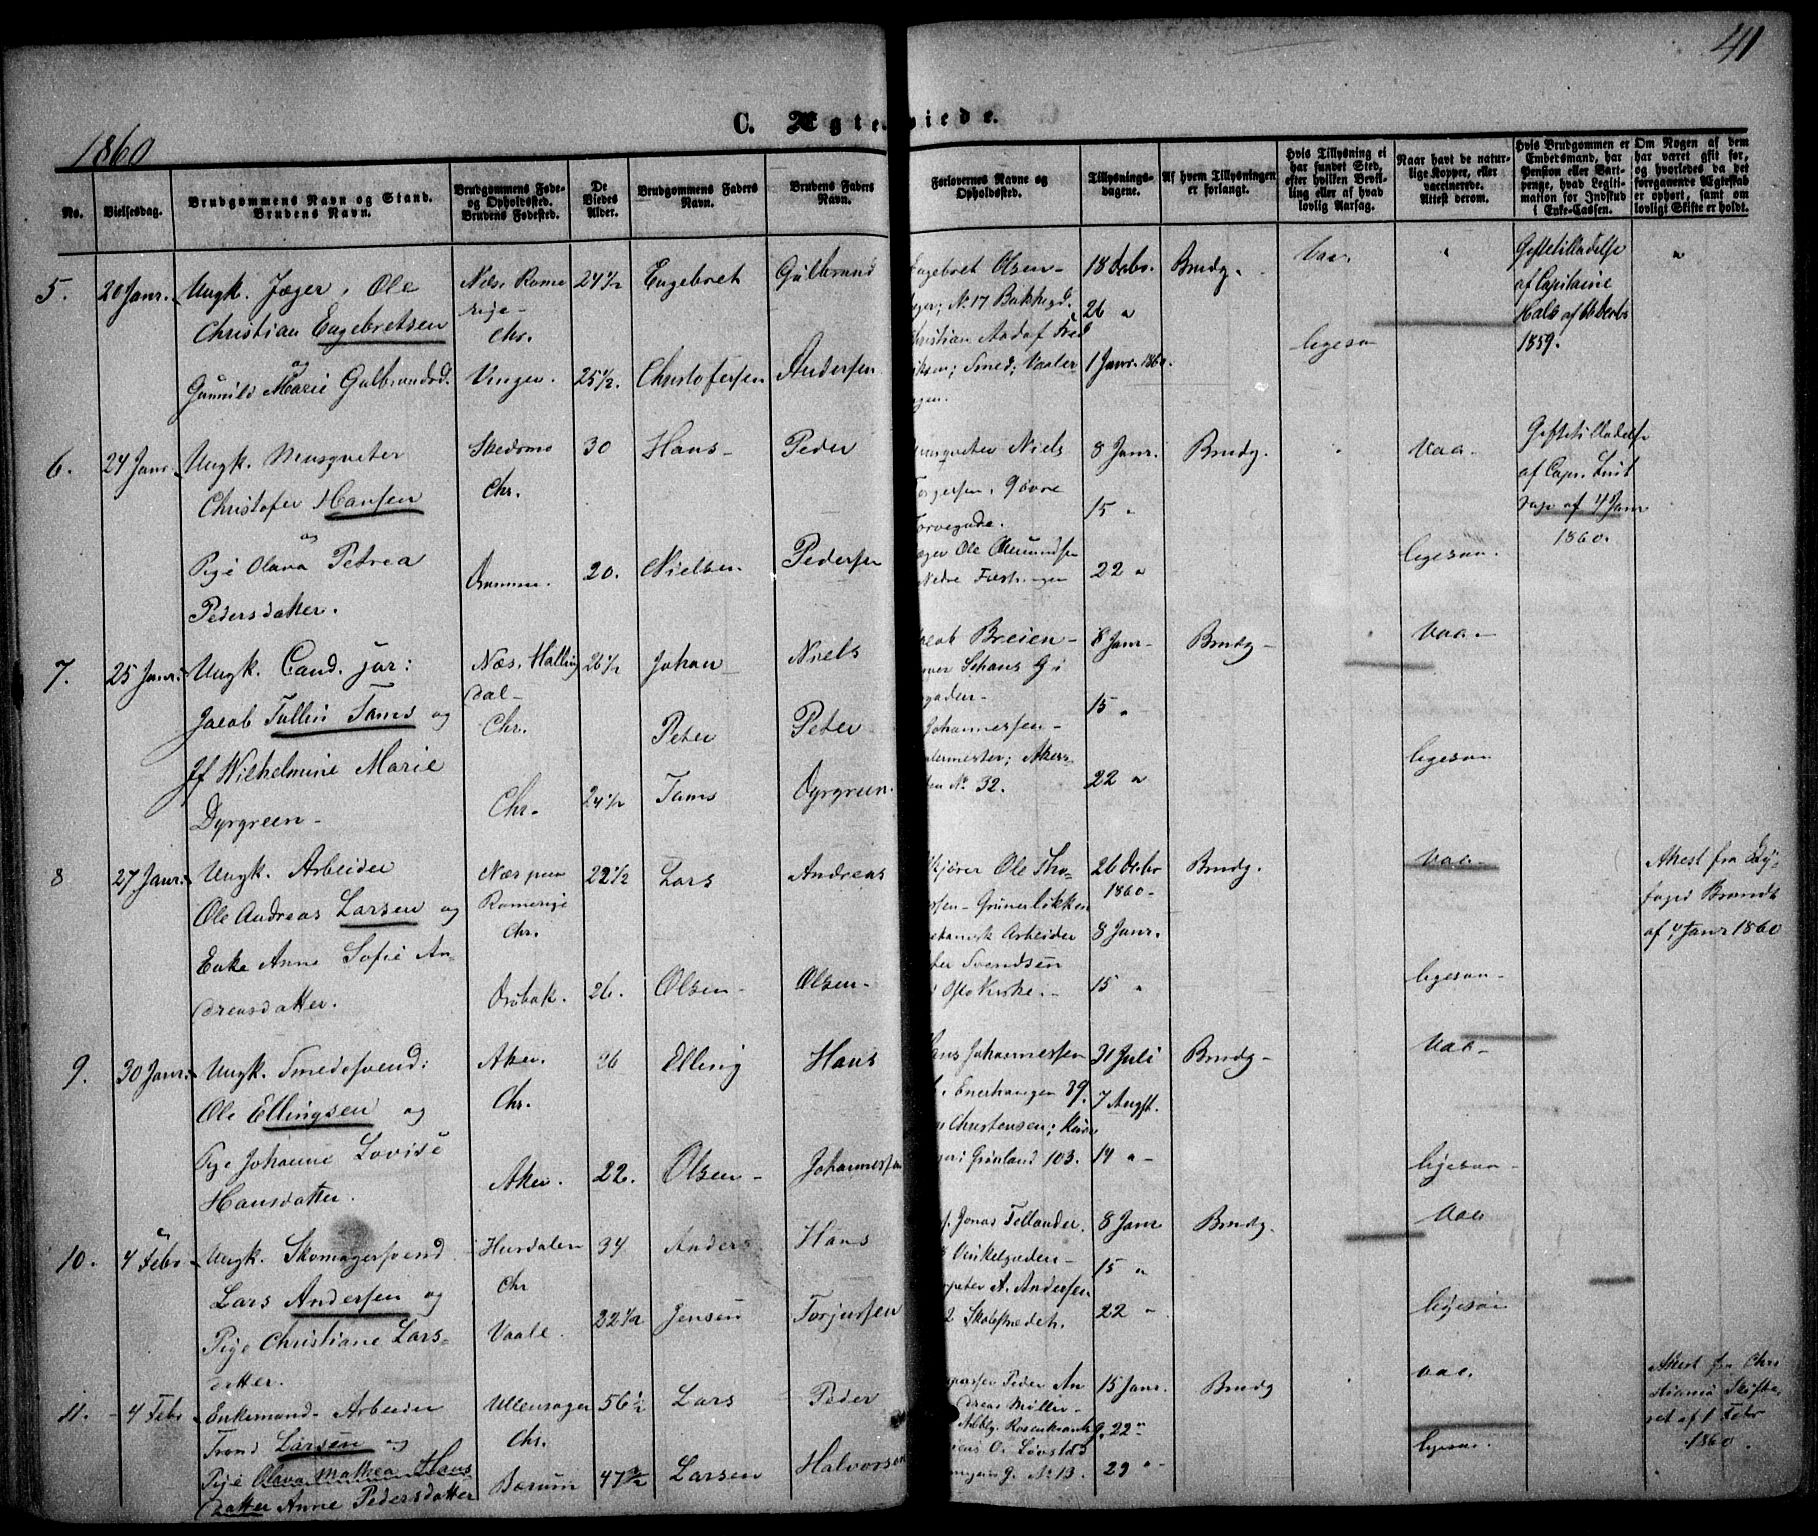 41
1860
C. Ægteviede.
No.
Vielsesdag.
Brudgommens Navn og Stand.
Brudens Navn.
Brudgommens Føde- og Opholdssted.
Brudens Fødested.
De Viedes Alder.
Brudgommens Faders Navn.
Brudens Faders Navn.
Forlovernes Navne og Opholdssted.
Tillysningsdagene.
Af hvem Tillysningen er forlangt.
Hvis Tillysning ei har fundet Sted, efter hvilken Bevilling eller af hvad lovlig Aarsag.
Naar havt de naturlige Kopper, eller vaccinerede. Attest derom.
Hvis Brudgommen er Embedsmand, har Pension eller Vartpenge, hvad Legitimation for Indskud i Enke-Cassen.
Om Nogen af dem har været gift før, og hvorledes da det foregaaende Ægteskab er ophørt, samt om lovligt Skifte er holdt.
5. 20 Janr. Ungk. Jæger, Ole Næs, Rome 24½ Engebret Gulbrand Engebret Olsen 18 Decbr. Brudg. Vac. " Giftetilladelse "
Christian Engebretsen rige No 17 Bakkegd. 26 " af Capitaine
og Chr. Christian Hals af
Gunnild Marie Gulbrandsd. Vinger. 25½. Christofersen Andersen Smed; Vaaler 1 Janr. 1860. ligesaa 1859.
gen.
6. 24 Janr. Ungk. Musqueter Skedsmo 30 Hans Peder Musqueter Niels 8 Janr. Brudg. Vac. Giftetilladelse
Christofer Hansen Chr. Torgersen, Øvre 15 " af Capt.
og Torvegade. af 4 Janr
Pige Olava Petrea Drammen. 20. Nielsen Pedersen Jæger Ole 22 " ligesaa. 1860.
Pedersdatter. Nedre Fæstningen
7. 25 Janr. Ungk. Cand. jur: Næs, Halling 26½ Johan Niels Jacob Breien 8 Janr. Brudg. Vac.
Jacob Tullin Tams og dal 15 "
Chr. Peter Peter Johannessen
Jf Wilhelmine Marie Akers- ligesaa
Dyrgreen Chr. 24½ Tams Dyrgreen. No 32. 22 "
8 27 Janr. Ungk. Arbeider Næs paa 22½ Lars Andreas Ole Tho- 26 Decbr Brudg. Vac. Attest fra By-
Ole Andreas Larsen og Romerige Grünerløkken 1860 foged Brandt
Enke Anne Sofie An- Chr. Arbeider 8 Janr. af 7 Janr 1860
dreasdatter. Drøbak. 26. Olsen Olsen Svendsen 15 " ligesaa
Oslo Kirke.
9. 30 Janr. Ungk. Smedesvend: Aker. 26 Elling Hans Hans Johannessen 31 Juli Brudg. Vac.
Ole Ellingsen og Chr. Enerhaugen 39. 7 Augst.
Pige Johanne Lovise Christensen; ligesaa
Hansdatter. Aker. 22. Olsen Johannessen Grønland 103. 14 "
10. 4 Febr Ungk. Skomagersvend Hurdalen 34 Anders Hans Jonas Fellander 8 Janr Brudg. Vac
Lars Andersen og Chr Vinkelgaden 15 "
Pige Christiane Lars- Vaale. 32½ Jensen Torjussen A. Andersen 22 " ligesaa
datter. Skolestrædet.
11. 4 Febr Enkemand Arbeider Ullensager 56½ Lars Peder Peder An 15 Janr. Brudg Vac. Attest fra Chri
Trond Larsen og Chr. dreas Møller stiania Skifte
Rosenkrantzg. 22 " ret af 1 Febr
Pige Olava Mathea Hans Bærum 47½ Larsen Halvorsen O. Løvstad ligesaa. 1860.
datter Anne Pedersdatter No 13. 29 "